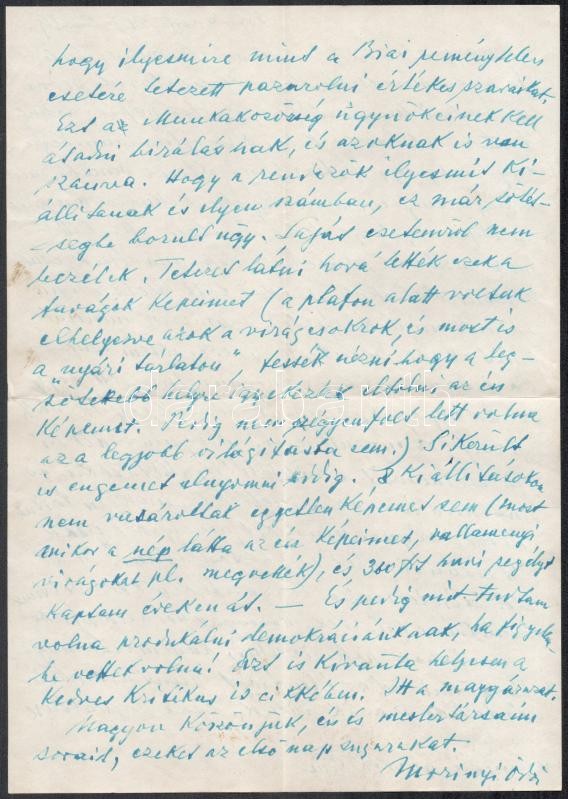 hogy ilyesmire mint a Biai reménytelen
esetére tetszett pazarolni értékes szavaikat.
Ezt az Munkaközösség ügynökeinek kell
átadni bírálásnak, és azoknak is van
szánva. Hogy a rendezők ilyesmit ki-
állítanak és ilyen számban, ez már sötét-
-ségbe borult ügy. Saját esetemről nem
beszélek. Tetszett látni hová tették ezek a
képeimet (a plafon alatt voltak
elhelyezve azok a virágcsokrok, és most is
a "nyári tárlaton", tessék nézni hogy a leg-
sötétebb helyre igyekeztek eltolni az én
képemet. Pedig nem szégyen lett volna
az a legjobb világításba sem.) Sikerült
is engemet elnyomni eddig. Kiállításokon
nem vásároltak egyetlen képemet sem (most
amikor a nép látta az én képeimet, valamennyi
virágokat pl. megvették), és 360 frt havi segélyt
kaptam éveken át. — És pedig mit tudtam
volna produkálni demokráciánknak, ha figyelem-
be vettek volna! Ezt is kívánta helyesen a
kedves Kritikus is cikkében. Itt a magyarázat.
Nagyon köszönjük, én és mestertársaim
sorait, ezeket az első napsugarakat.
Morinyi Ödö